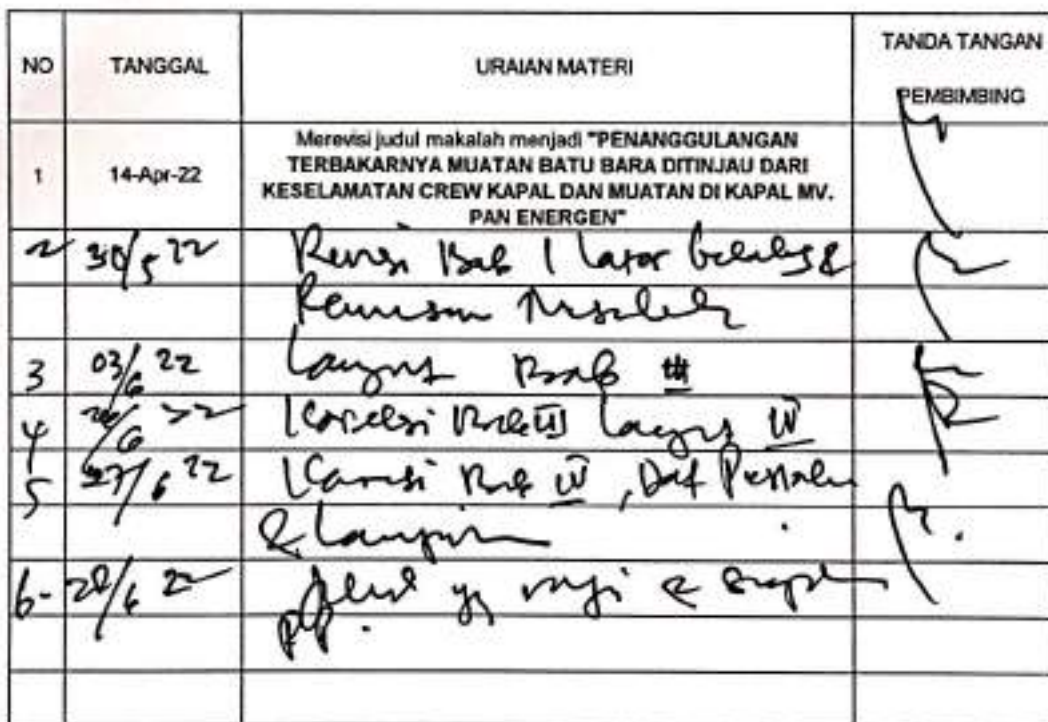 NO TANGGAL URAIAN MATERI TANDA TANGAN PEMBIMBING
1 14-Apr-22 Merevisi judul makalah menjadi "PENANGGULANGAN
TERBAKARNYA MUATAN BATU BARA DITINJAU DARI
KESELAMATAN CREW KAPAL DAN MUATAN DI KAPAL MV.
PAN ENERGEN"
2 30/5 22 Revisi Bab I Latar belakang &
Rumusan Masalah
3 03/6 22 Lanjut Bab
4 /6 22 Koreksi Bab III Lanjut IV
5 27/6 22 Koreksi Bab IV, Daf Pustaka
& Lampiran
6- 28/6 22 yg rapi &